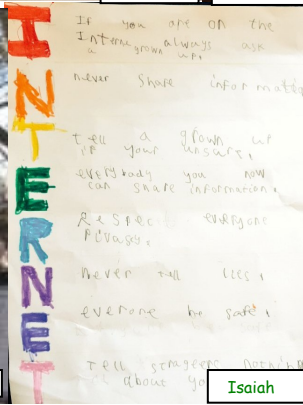 I
N
T
E
R
N
E
T
If you are on the
Interne always ask
a grown up.
never share informateo
tell a grown up
if your unsure.
everybady you now
can share information.
Respec everyone
Pivasy.
Never tell lies.
everone be safe.
Tell strageers nothing
about yo
Isaiah